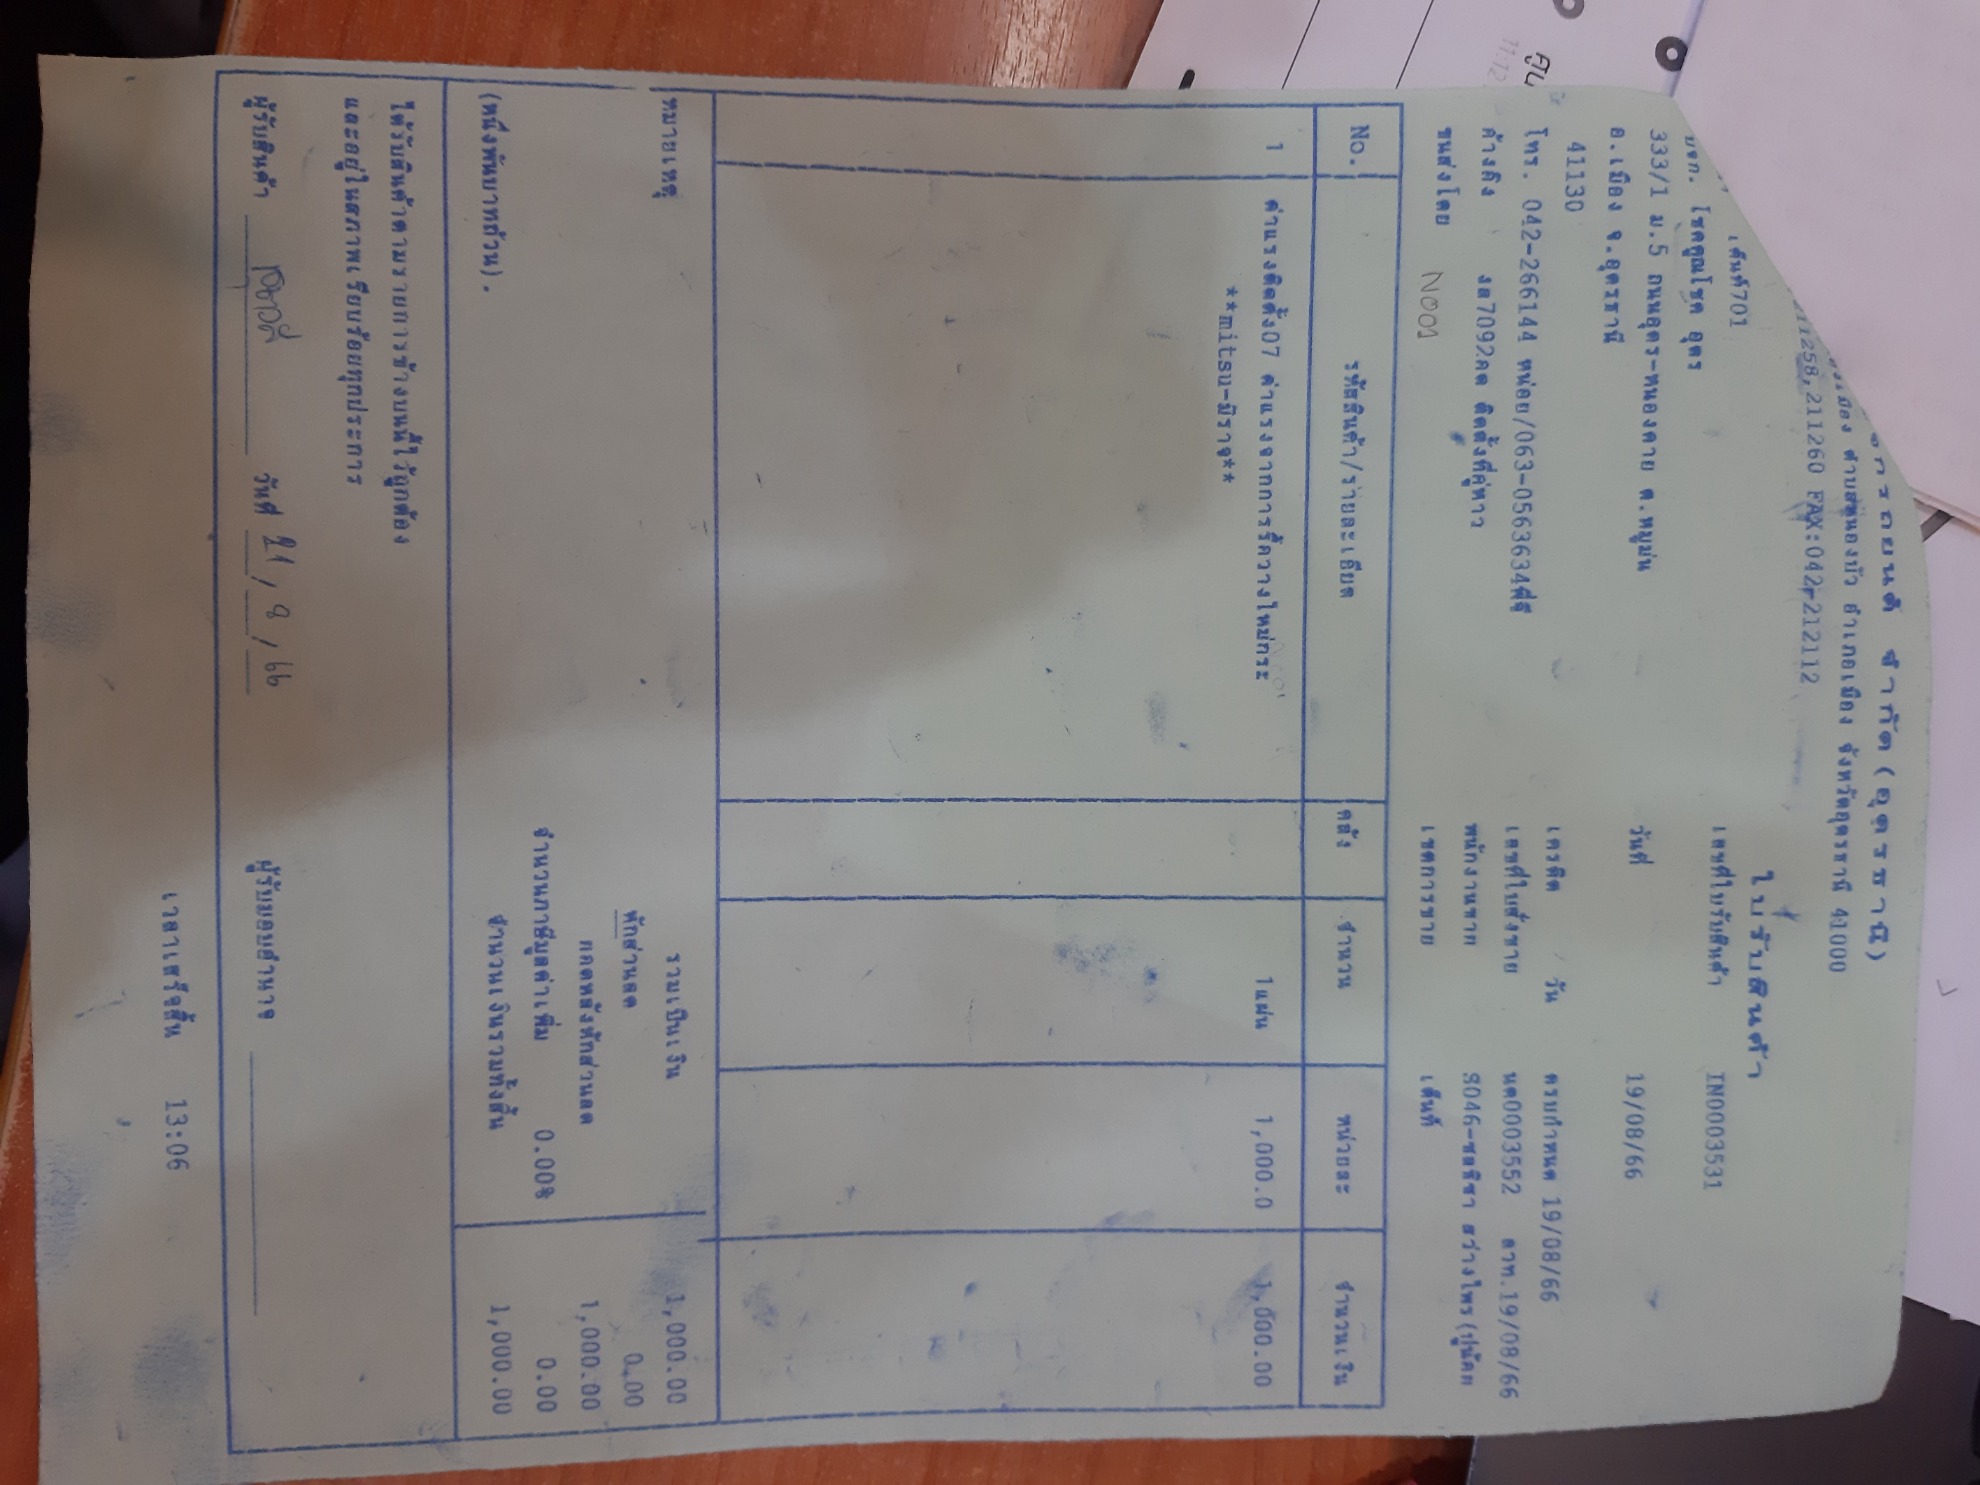 กรถยนต์ จำกัด(อุดรธานี)
เมือง ตำบลหนองบัว อำเภอเมือง จังหวัดอุดรธานี 41000
211258,211260 FAX:042-212112
ใบรับสินค้า
เต็นท์701
เลขที่ใบรับสินค้า IN0003531
บจก. โชคคูณโชค อุดร
333/1 ม.5 ถนนอุดร-หนองคาย ต.หมูม่น
วันที่ 19/08/66
อ.เมือง จ.อุดรธานี
41130
เครดิต วัน ครบกำหนด 19/08/66
โทร. 042-266144 หน่อย/063-0563634พี่จิ
เลขที่ใบสั่งขาย นด0003552 ลวท.19/08/66
อ้างถึง งล7092กด ติดตั้งที่คู่หาว
พนักงานขาย S046-ชลธิชา สว่างไพร(ปูนัดย
ขนส่งโดย
เขตการขาย เต็นท์
No. รหัสสินค้า/รายละเอียด คลัง จำนวน หน่วยละ จำนวนเงิน
1 ค่าแรงติดตั้ง07 ค่าแรงจากการรื้อวางใหม่กระ 1แผ่น 1,000.0 1,000.00
**mitsu-มิราจ**
หมายเหตุ รวมเป็นเงิน 1,000.00
หักส่วนลด 0.00
ยอดหลังหักส่วนลด 1,000.00
จำนวนภาษีมูลค่าเพิ่ม 0.00% 0.00
(หนึ่งพันบาทถ้วน). จำนวนเงินรวมทั้งสิ้น 1,000.00
ได้รับสินค้าตามรายการข้างบนนี้ไว้ถูกต้อง
และอยู่ในสภาพเรียบร้อยทุกประการ
ผู้รับสินค้า วันที่ 21/8/66 ผู้รับมอบอำนาจ
เวลาเสร็จสิ้น 13:06